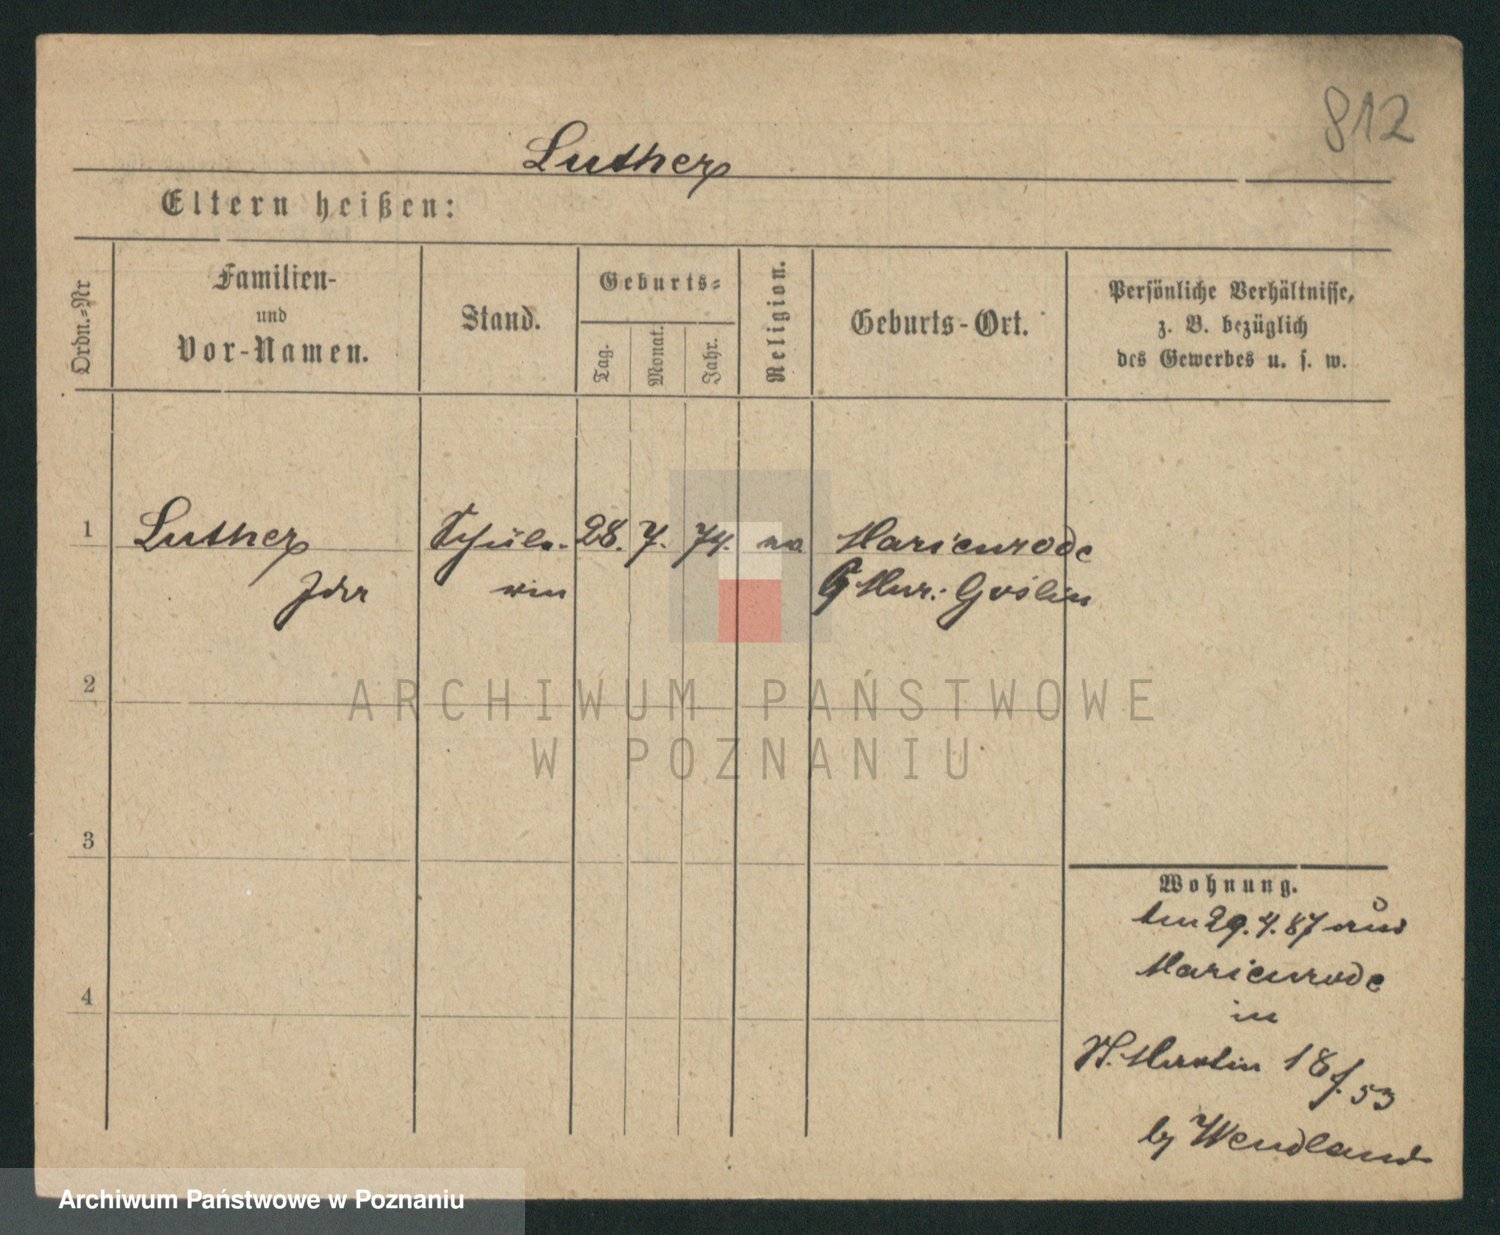 812
Luther
Eltern heißen:
Ordn.-Nr
Familien-
und
Vor-Namen.
Stand.
Geburts-
Tag.
Monat.
Jahr.
Religion.
Geburts-Ort.
Persönliche Verhältnisse,
z. B. bezüglich
des Gewerbes u. s. w.
1
Luther
Ida
Schüle-
rin
28. 7. 74.
Marienrode
Goslin
2
3
4
Wohnung.
29. 4. 87 aus
Marienrode
in
St. Martin 18
53
by Wendland
ARCHIWUM PAŃSTWOWE
W POZNANIU
Archiwum Państwowe w Poznaniu